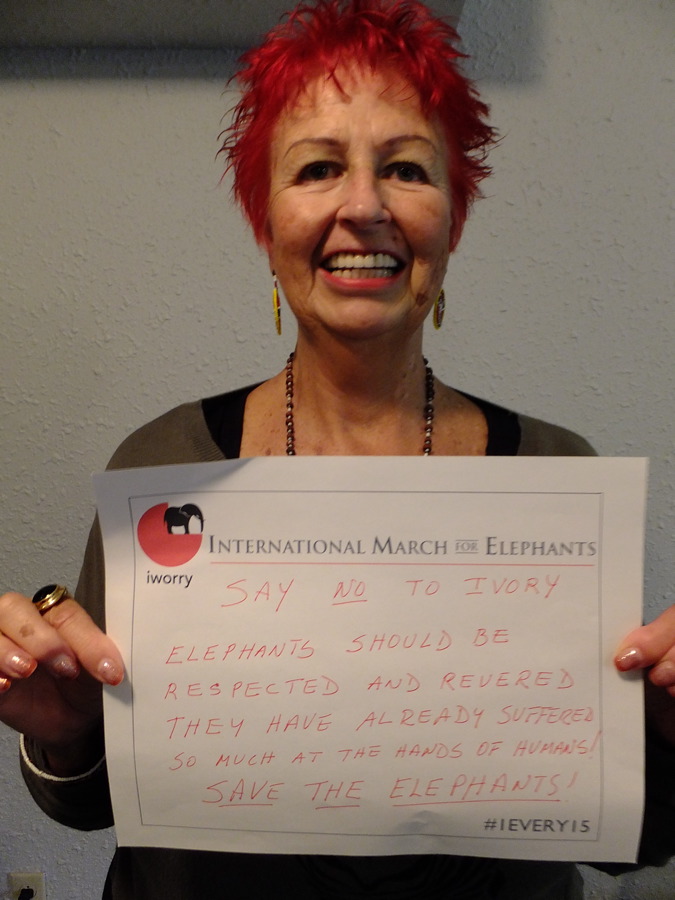 INTERNATIONAL MARCH FOR ELEPHANTS
iworry
SAY NO TO IVORY
ELEPHANTS SHOULD BE
RESPECTED AND REVERED
THEY HAVE ALREADY SUFFERED
SO MUCH AT THE HANDS OF HUMANS!
SAVE THE ELEPHANTS!
#1EVERY15